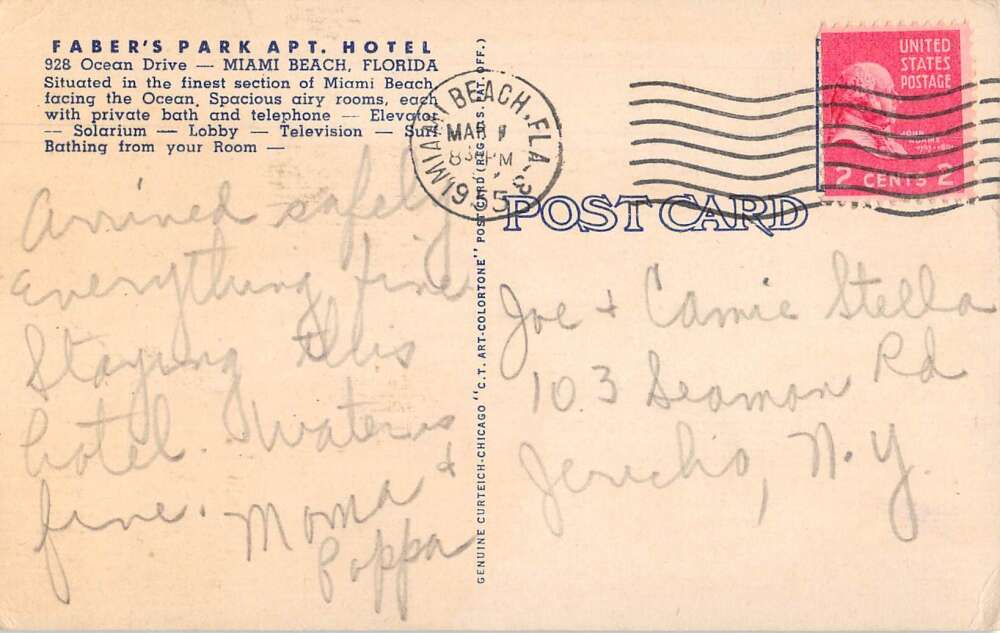 FABER'S PARK APT. HOTEL
928 Ocean Drive — MIAMI BEACH, FLORIDA
Situated in the finest section of Miami Beach
facing the Ocean. Spacious airy rooms, each
with private bath and telephone — Elevator
— Solarium — Lobby — Television — Sun
Bathing from your Room —
Arrived safely
Everything fine
Staying this
hotel. Water is
fine. Moma &
Poppa
GENUINE CURTEICH-CHICAGO "C.T. ART-COLORTONE" POST CARD (REG. U.S. PAT. OFF.)
MIAMI BEACH, FLA. 3
MAR
PM
1955
UNITED
STATES
POSTAGE
JOHN
ADAMS
2 CENTS 2
POST CARD
Joe & Camie Stella
103 Seaman Rd
Jericho, N.Y.